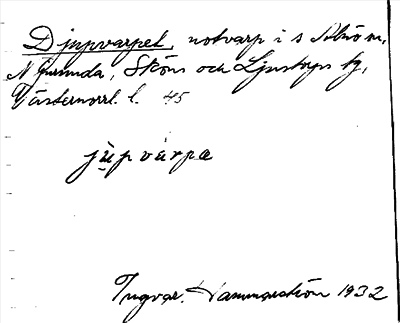 Djupvarpet, notvarp i s Alnö m,
Njurunda, Sköns och Ljustorps tg,
Västernorrl. l. 45
jùpvárpa
Ingvar Hammarström 1932